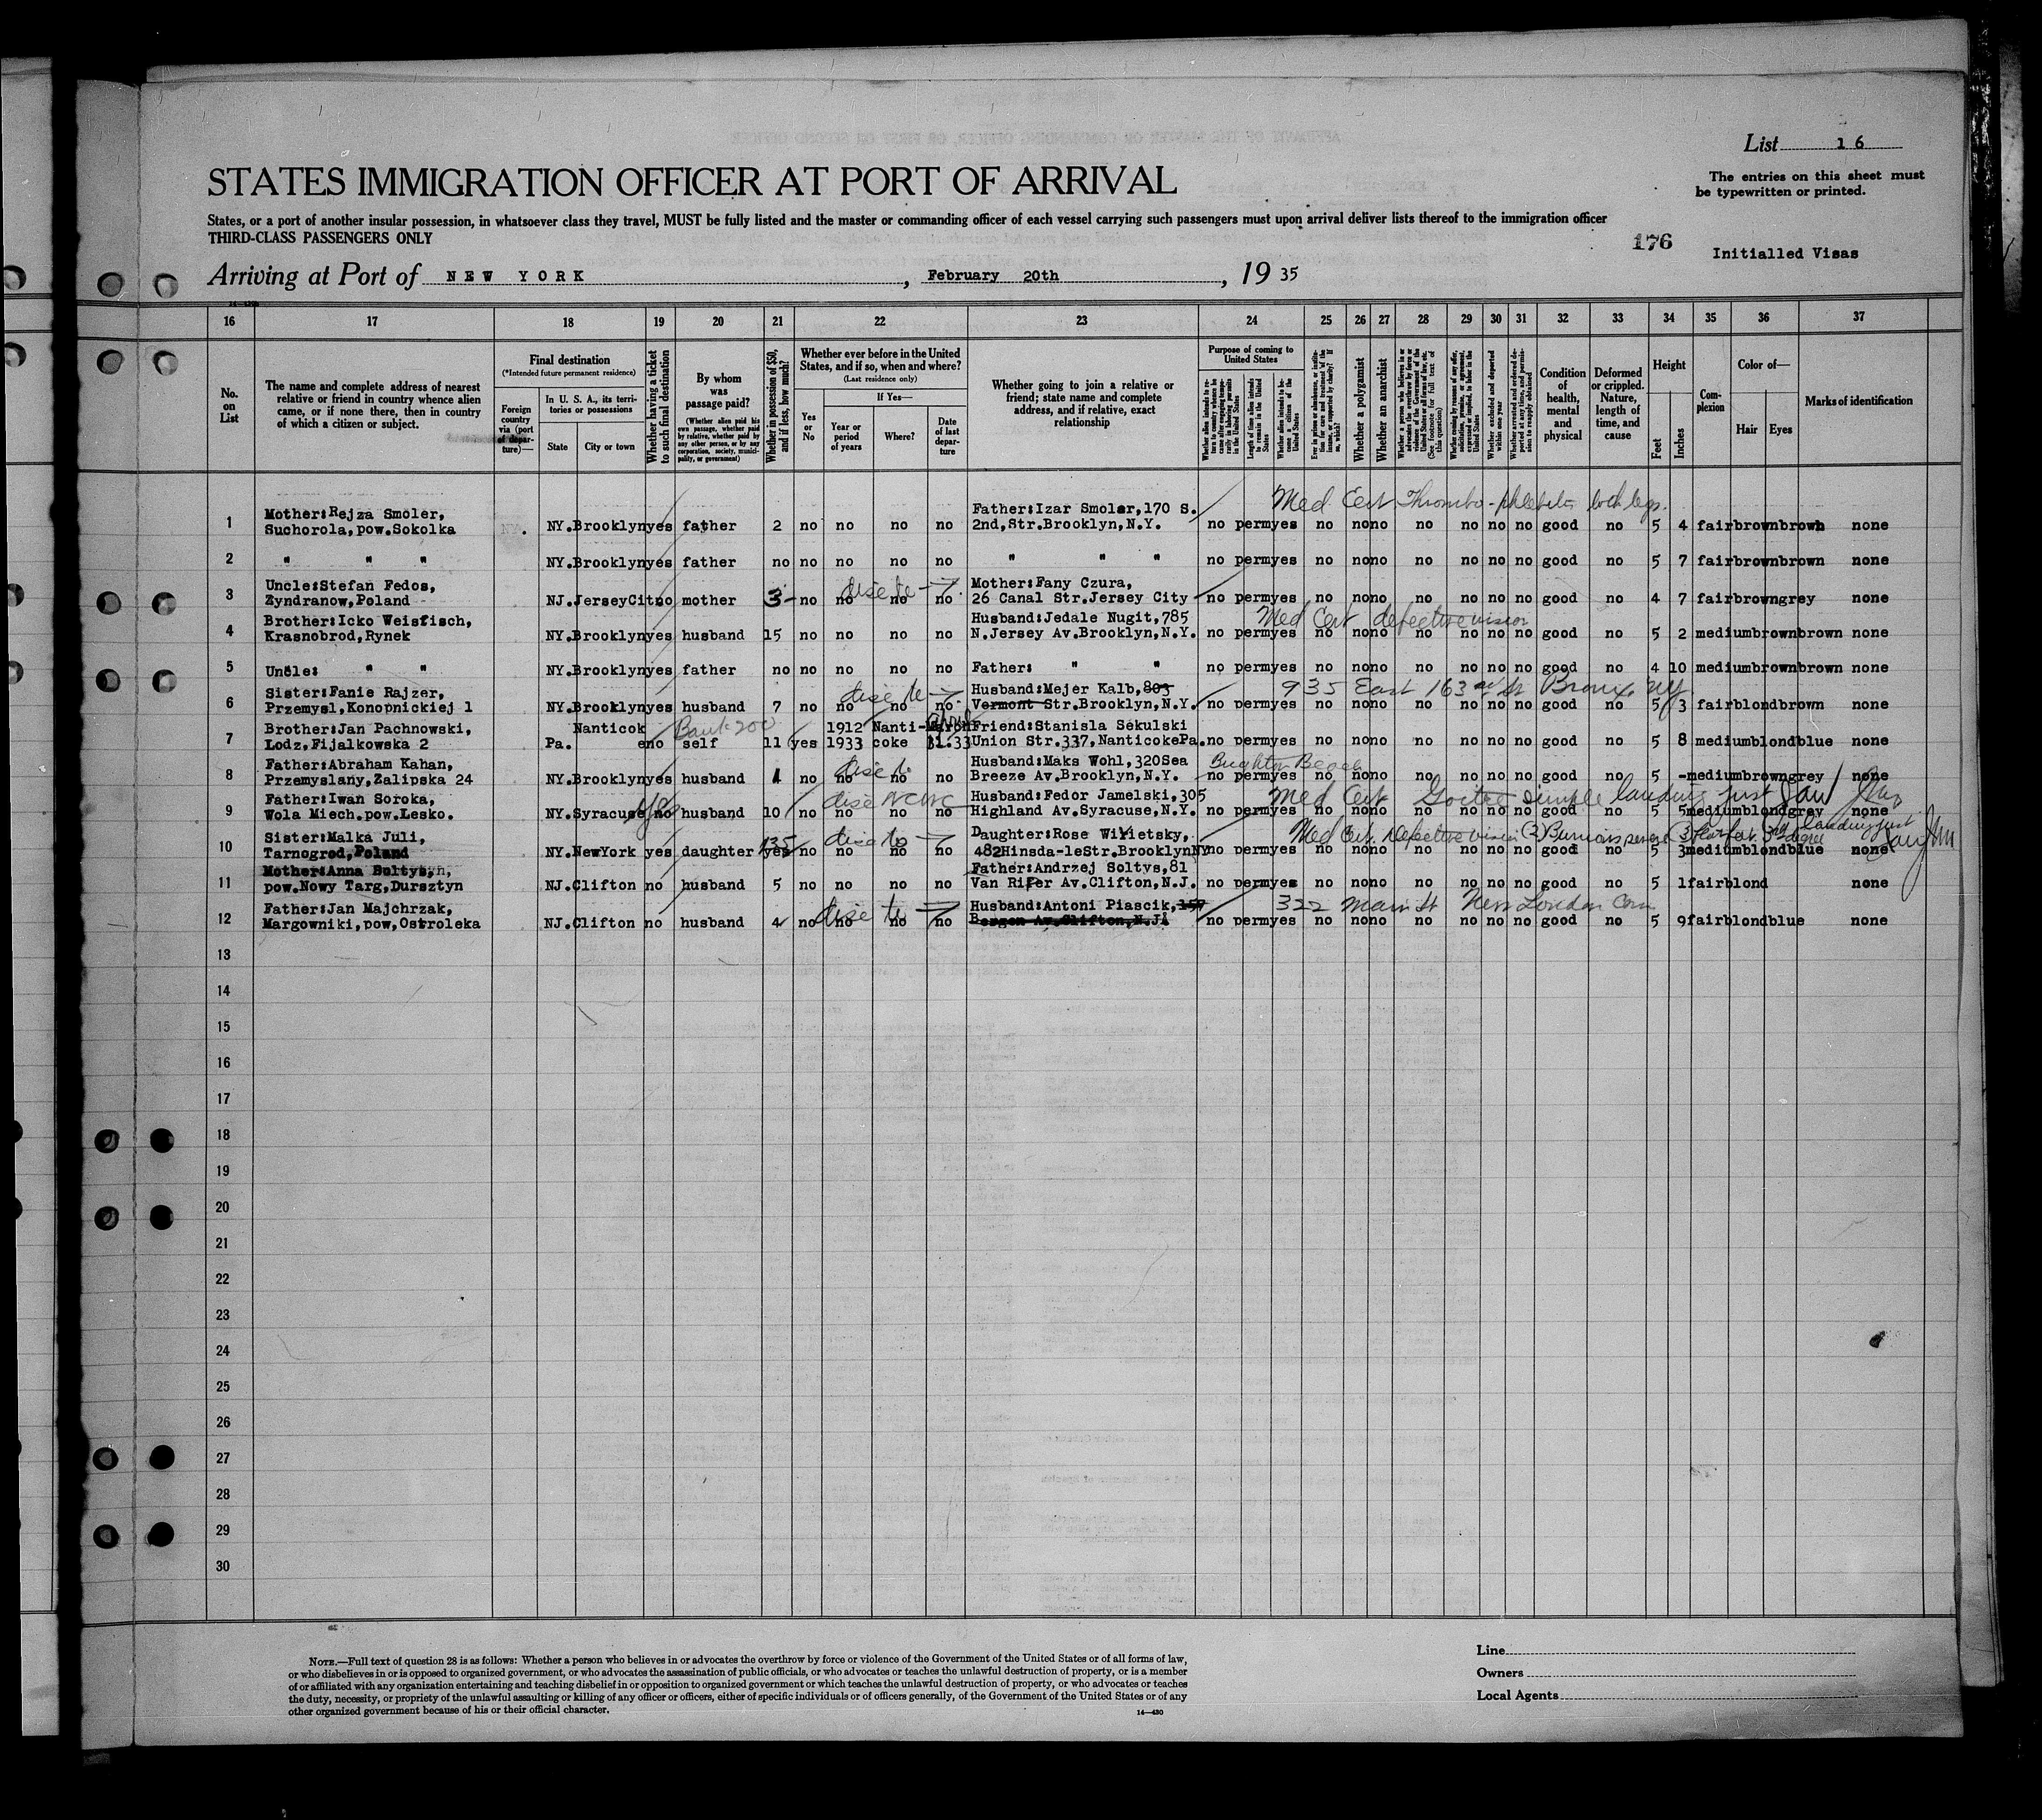 List 16
The entries on this sheet must
be typewritten or printed.
STATES IMMIGRATION OFFICER AT PORT OF ARRIVAL
States, or a port of another insular possession, in whatsoever class they travel, MUST be fully listed and the master or commanding officer of each vessel carrying such passengers must upon arrival deliver lists thereof to the immigration officer
THIRD-CLASS PASSENGERS ONLY
176
Initialled Visas
Arriving at Port of NEW YORK, February 20th, 1935
16 17 18 19 20 21 22 23 24 25 26 27 28 29 30 31 32 33 34 35 36 37
No. on List
The name and complete address of nearest relative or friend in country whence alien came, or if none there, then in country of which a citizen or subject.
Final destination
(*Intended future permanent residence)
Foreign country via (port of departure)—
In U. S. A., its territories or possessions
State
City or town
Whether having a ticket to such final destination
By whom was passage paid?
(Whether alien paid his own passage, whether paid by relative, whether paid by any other person, or by any corporation, society, municipality, or government)
Whether in possession of $50, and if less, how much?
Whether ever before in the United States, and if so, when and where?
(Last residence only)
Yes or No
If Yes—
Year or period of years
Where?
Date of last departure
Whether going to join a relative or friend; state name and complete address, and if relative, exact relationship
Purpose of coming to United States
Whether a polygamist
Whether an anarchist
Condition of health, mental and physical
Deformed or crippled. Nature, length of time, and cause
Height
Feet
Inches
Complexion
Color of—
Hair
Eyes
Marks of identification
Med Cert Thrombo-phlebitis both legs.
Mother:Rejza Smoler, Father:Izar Smolar,170 S.
1 Suchorola,pow.Sokolka NY.Brooklyn yes father 2 no no no no 2nd,Str.Brooklyn,N.Y. no perm yes no no no no no no no good no 5 4 fair brown brown none
2 " " " NY.Brooklyn yes father no no no no no " " " no perm yes no no no no no no no good no 5 7 fair brown brown none
Uncle:Stefan Fedos, Mother:Fany Czura,
3 Zyndranow,Poland NJ.JerseyCit no mother 3- no no no no 26 Canal Str.Jersey City no perm yes no no no no no no no good no 4 7 fair brown grey none
Brother:Icko Weisfisch, Husband:Jedale Nugit,785 Med Cert defective vision
4 Krasnobrod,Rynek NY.Brooklyn yes husband 15 no no no no N.Jersey Av.Brooklyn,N.Y. no perm yes no no no no no no no good no 5 2 medium brown brown none
5 Uncle: " " NY.Brooklyn yes father no no no no no Father: " " no perm yes no no no no no no no good no 4 10 medium brown brown none
Sister:Fanie Rajzer, Husband:Mejer Kalb,803 935 East 163rd St Bronx, NY.
6 Przemysl,Konopnickiej 1 NY.Brooklyn yes husband 7 no no no no Vermont Str.Brooklyn,N.Y. no perm yes no no no no no no no good no 5 3 fair blond brown none
Brother:Jan Pachnowski, Nanticok Bank 200 1912 Nanti- Friend:Stanisla Sekulski
7 Lodz,Fijalkowska 2 Pa. e no self 11 yes 1933 coke 31.33 Union Str.337,NanticokePa. no perm yes no no no no no no no good no 5 8 medium blond blue none
Father:Abraham Kahan, Husband:Maks Wohl,320Sea Brighton Beach
8 Przemyslany,Zalipska 24 NY.Brooklyn yes husband 1 no no no no Breeze Av.Brooklyn,N.Y. no perm yes no no no no no no no good no 5 - medium brown grey none
Father:Iwan Soroka, yes Husband:Fedor Jamelski,305 Med Cert Goitre simple landing just
9 Wola Miech.pow.Lesko. NY.Syracuse no husband 10 no no no no Highland Av.Syracuse,N.Y. no perm yes no no no no no no no good no 5 5 medium blond grey none
Sister:Malka Juli, 135 Daughter:Rose Wilietsky, Med Cert. Defective vision landing just
10 Tarnogrod,Poland NY.NewYork yes daughter yes no no no no 482Hinsda-leStr.BrooklynNY no perm yes no no no no no no no good no 5 3 medium blond blue none
Mother:Anna Soltysyn, Father:Andrzej Soltys,81
11 pow.Nowy Targ,Dursztyn NJ.Clifton no husband 5 no no no no Van Riper Av.Clifton,N.J. no perm yes no no no no no no no good no 5 1 fair blond none
Father:Jan Majchrzak, Husband:Antoni Piascik,157 322 Main St New London Conn
12 Margowniki,pow,Ostroleka NJ.Clifton no husband 4 no no no no Bergen Av.Clifton,N.J. no perm yes no no no no no no no good no 5 9 fair blond blue none
13
14
15
16
17
18
19
20
21
22
23
24
25
26
27
28
29
30
NOTE.—Full text of question 28 is as follows: Whether a person who believes in or advocates the overthrow by force or violence of the Government of the United States or of all forms of law,
or who disbelieves in or is opposed to organized government, or who advocates the assassination of public officials, or who advocates or teaches the unlawful destruction of property, or is a member
of or affiliated with any organization entertaining and teaching disbelief in or opposition to organized government or which teaches the unlawful destruction of property, or who advocates or teaches
the duty, necessity, or propriety of the unlawful assaulting or killing of any officer or officers, either of specific individuals or of officers generally, of the Government of the United States or of any
other organized government because of his or their official character.
14—430
Line
Owners
Local Agents